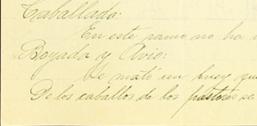 Caballada:
En este ramo no ha
Boyada y Avio:
Se mató un buey que
De los caballos de los pastores se